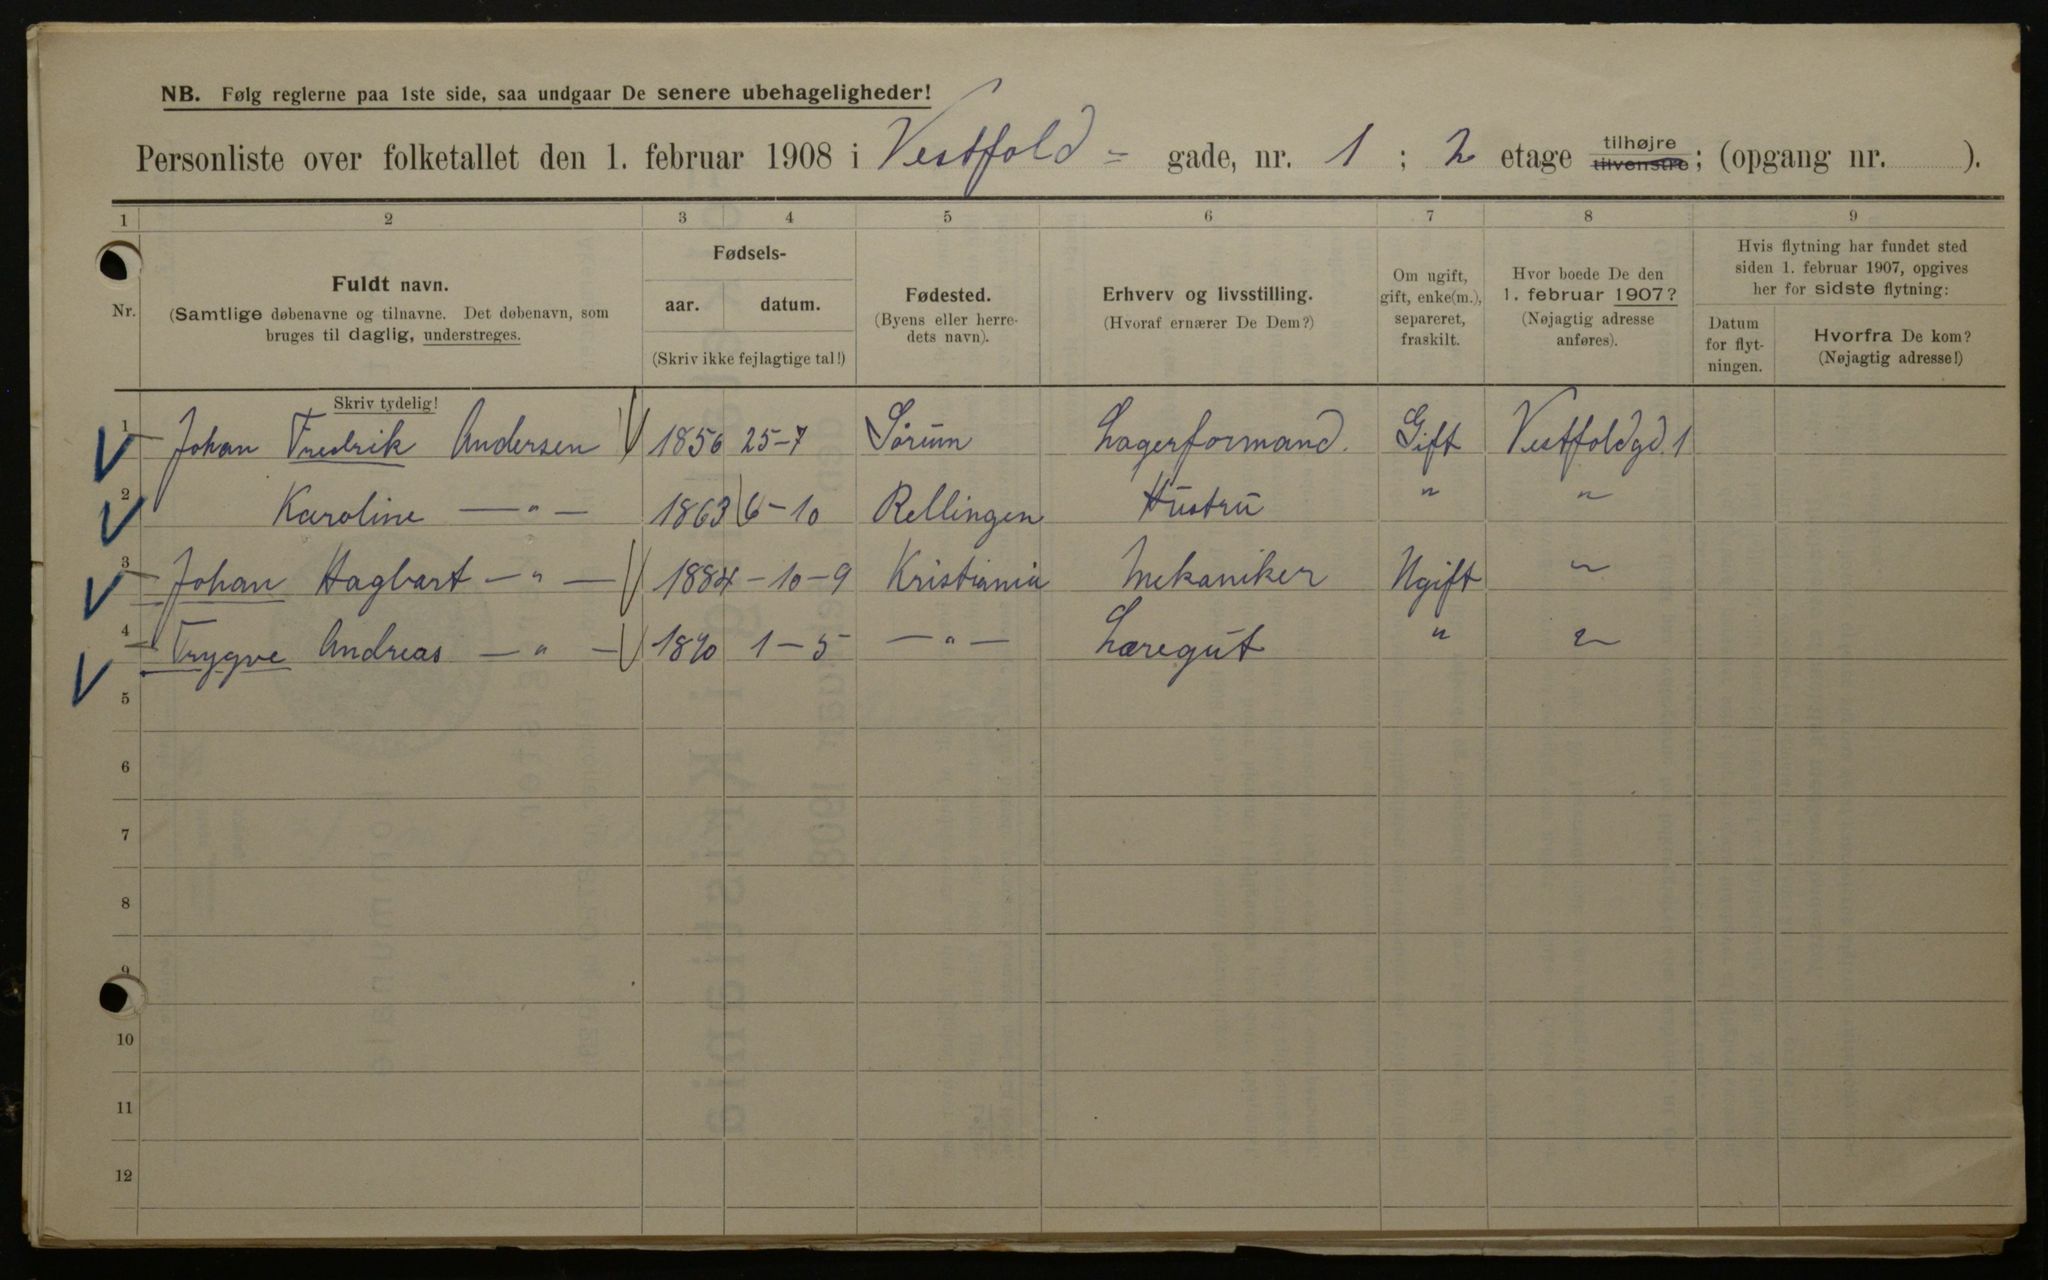 NB. Følg reglerne paa 1ste side, saa undgaar De senere ubehageligheder!
Personliste over folketallet den 1. februar 1908 i Vestfold = gade, nr. 1 ; 2 etage tilhøjre tilvenstre ; (opgang nr. ).
1 2 3 4 5 6 7 8 9
Nr.
Fuldt navn.
(Samtlige døbenavne og tilnavne. Det døbenavn, som
bruges til daglig, understreges.
Skriv tydelig!
Fødsels-
aar. datum.
(Skriv ikke fejlagtige tal!)
Fødested.
(Byens eller herre-
dets navn).
Erhverv og livsstilling.
(Hvoraf ernærer De Dem?)
Om ugift,
gift, enke(m.),
separeret,
fraskilt.
Hvor boede De den
1. februar 1907?
(Nøjagtig adresse
anføres).
Hvis flytning har fundet sted
siden 1. februar 1907, opgives
her for sidste flytning:
Datum
for flyt-
ningen.
Hvorfra De kom?
(Nøjagtig adresse!)
1 Johan Fredrik Andersen 1856 25-7 Sørum Lagerformand. Gift Vestfoldgd. 1
2 Karoline — " — 1863 6-10 Rellingen Hustru " "
3 Johan Hagbart — " — 1884 - 10 - 9 Kristiania Mekaniker Ugift "
4 Trygve Andreas — " — 1890 1 - 5 — " — Læregut " "
5
6
7
8
9
10
11
12